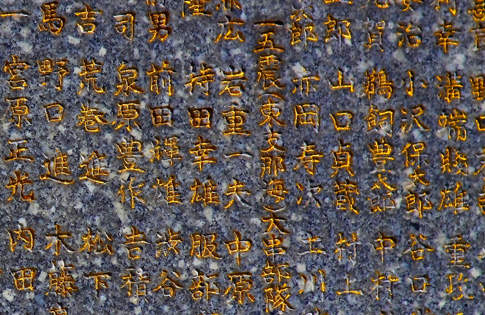 幸 溝端敗雄 重
治 小沢保太郎 谷口
賀 鵜飼豊次郎 中村
郎 山口貞蔵 村上
郎 赤岡寿次 土川
一五震(東支那海)大串部隊
広 岩重一夫 中原
持田幸雄 服部
男 前田輝雄 渋谷
司 泉原豊作 吉積
吉 荒巻進 松下
馬 野口進 木藤
一 宮原正光 内田